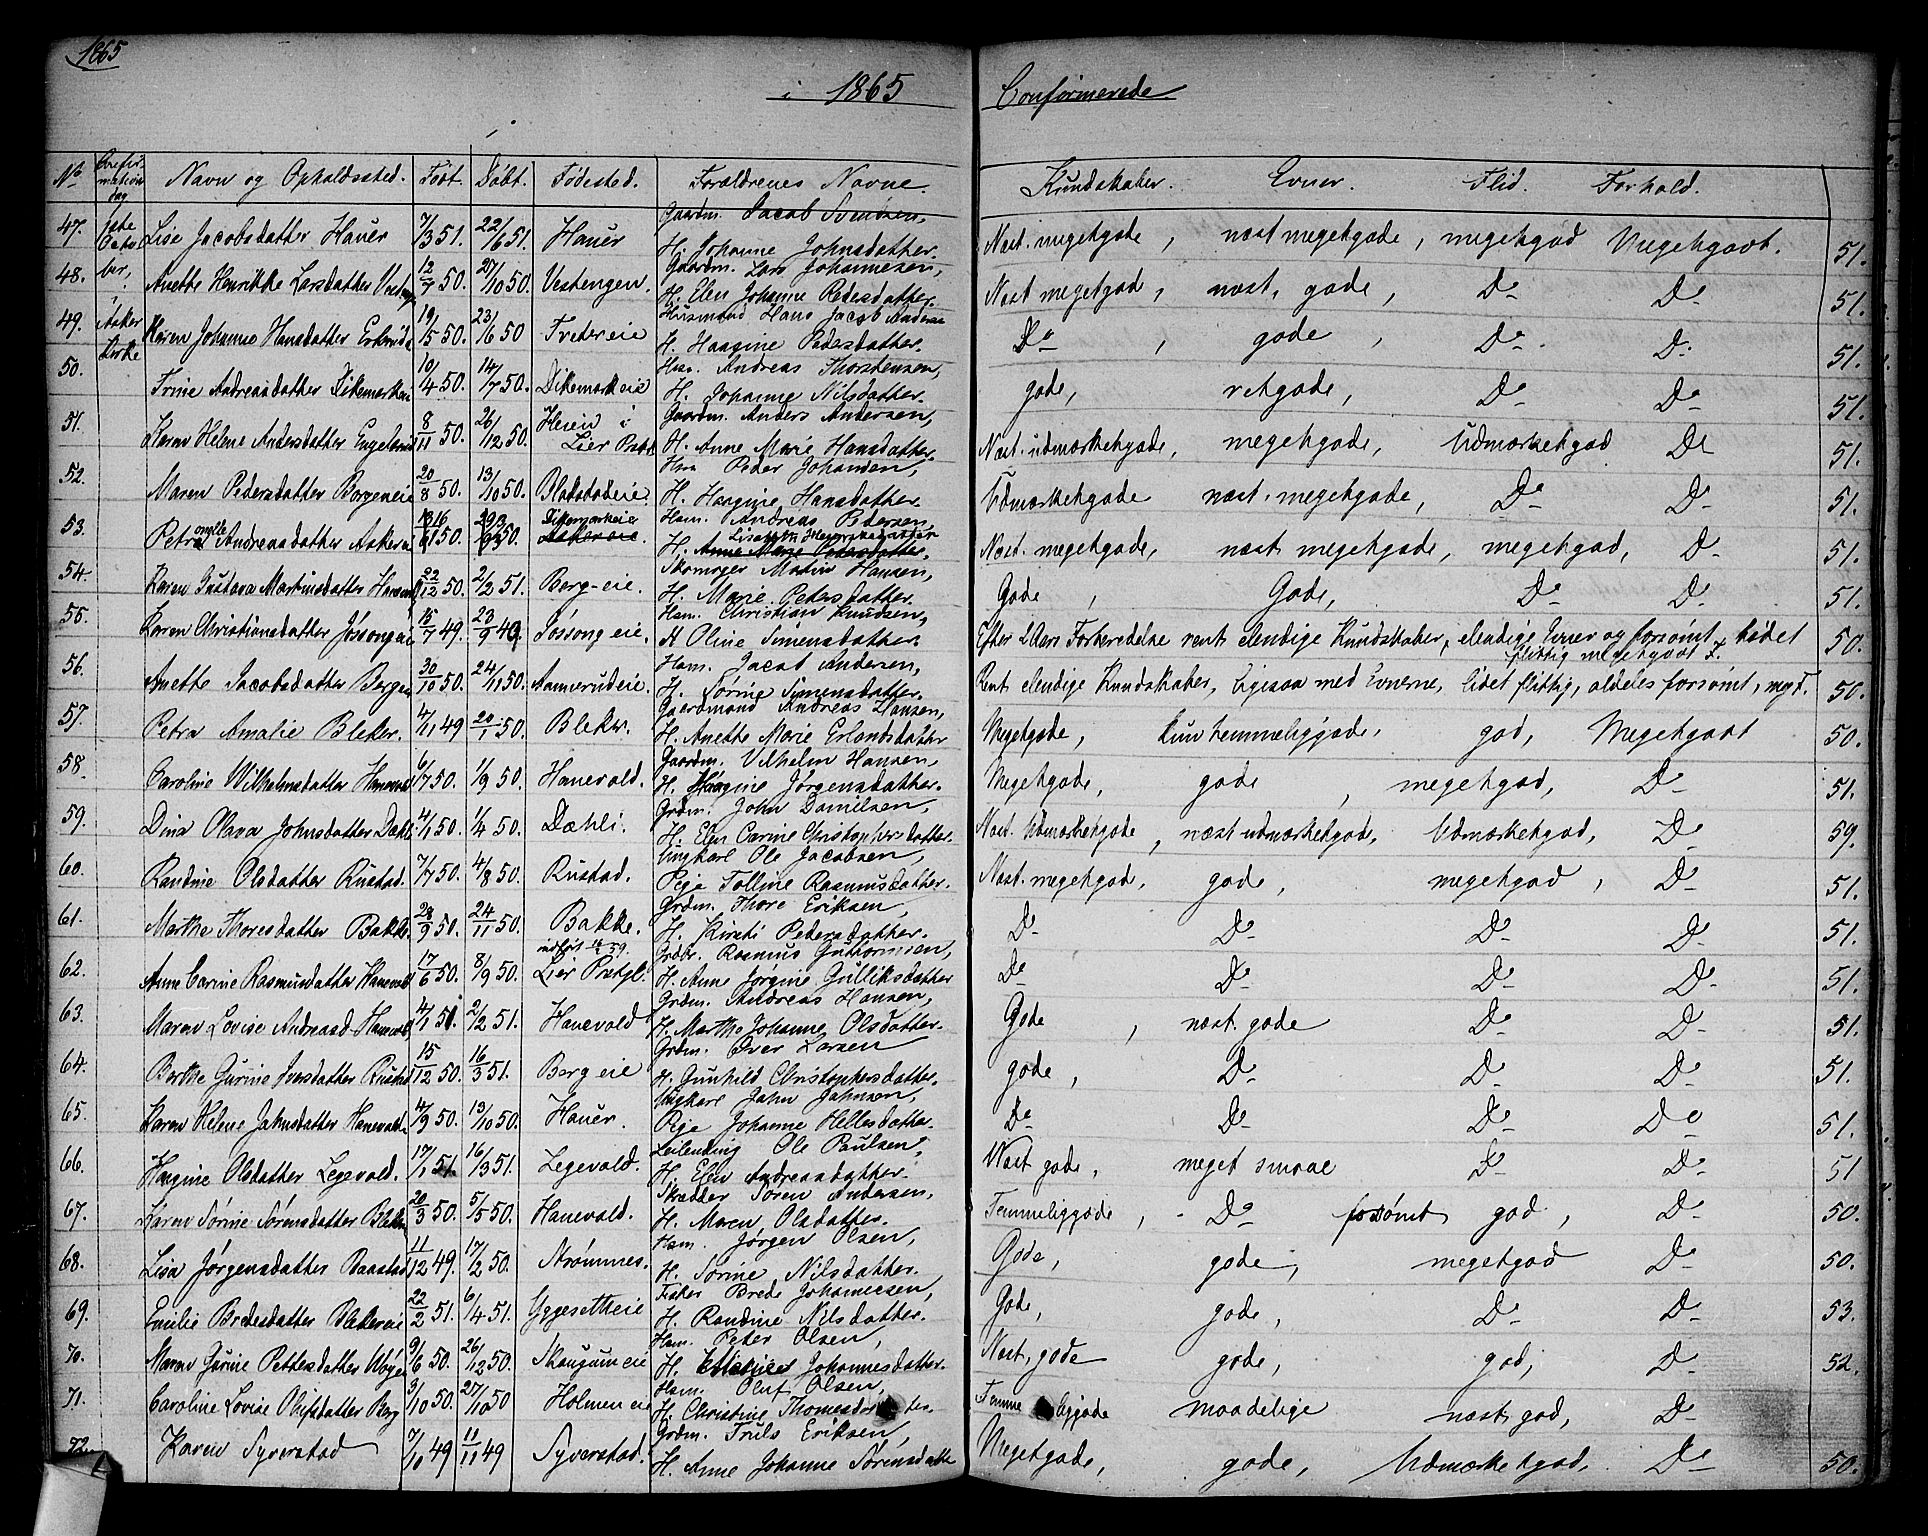 1865
i 1865 Confirmerede
No Confirmations dag Navn og Opholdssted. Født. Døbt. Fødested. Forældrenes Navne. Kundskaber. Evner. Flid. Forhold.
47. Lise Jacobsdatter Hauer 7/3 51. 22/6 51. Hauer Gaardm. Jacob Svendsen, H. Johanne Johnsdatter. Næst. megetgode, næst megetgode, megetgod Megetgodt. 51.
48. Anette Henrikke Larsdatter 12/7 50. 27/10 50. Vestengen. Gaardm. Lars Johannesen, H. Elen Johanne Pedersdatter. Næst megetgod, næst, gode, Do Do 51.
49. Asker Kirke Karen Johanne Hansdatter 19/5 50. 23/6 50 Gaardm. Husmand Hans Jacob Anderse H. Haagine Pedersdatter. Do, gode, Do. Do. 51.
50. Trine Andreasdatter Dikemarkeie 10/4 50. 14/7 50. Dikemarkeie Hsm. Andreas Thorstensen, H. Johanne Nilsdatter. gode, retgode, Do Do 51.
51. Karen Helene Andersdatter 8/11 50. 26/12 50. i Lier Gaardm. Anders Andersen, H. Anne Marie Hansdatter. Næst. udmærketgode, megetgode, Udmærketgod Do 51.
52. Maren Pedersdatter Borgeneie 20/8 50. 13/10 50. Hsm Peder Johansen, H. Haagine Hansdatter. Udmærketgode næst. megetgode, Do Do 51.
53. Petronelle Andreasdatter Dikemarkeie Askereie. Hsm. Andreas Pedersen, H. Anne Marie Pedersdatter. Næst. megetgode, næst megetgode, megetgod, Do 51.
54. Karen Gustava Martinsdatter 22/12 50. 2/2 51. Berg-eie. Skomager Martin Hansen, H. Marie Pedersdatter Gode, Gode, Do Do 51.
55. Karen Christiansdatter 15/7 49. 23/9 49. Jøssong eie. Hsm. Christian Knudsen, H Oline Simensdatter. Efter Aars Forberedelse rent elendige Kundskaber, elendige Evner og forsømt, lidet flittig megetgodt F. 50.
56. Anette Jacobsdatter Borgen 30/10 50. 24/11 50. Aamerudeie. Hsm. Jacob Andersen, H. Sørine Simensdatter. Rent elendige Kundskaber, ligesaa med Evnerne, lidet flittig, aldeles forsømt, 50.
57. Petra Amalie Bleker. 4/11 49 20/1 50. Bleker. Gaardmand Andreas Hansen, H. Anette Marie Erlandsdatter Megetgode, kun temmeliggode, god, Megetgodt 50.
58. Caroline Wilhelmsdatter 6/7 50. 1/9 50. Hanevold. Gaardm. Vilhelm Hansen, H. Haagine Jørgensdatter. Megetgode, gode, megetgod, Do 51.
59. Dina Olava Johnsdatter Dæhli 4/1 50. 1/4 50. Dæhli. Grdm. John Danielsen, H. Elen Carine Christophersdatter. Næst. Udmærketgode, næst udmærketgode, Udmærketgod, Do 59.
60. Randine Olsdatter Rustad. 7/7 50. 4/8 50. Rustad. Ungkarl Ole Jacobsen, Pige Tolline Rasmusdatter. Næst. megetgod, gode, megetgod, Do 51.
61. Marthe Thoresdatter Bakke. 28/9 50. 24/11 50. Bakke. Grdm. Thore Eriksen, H. Kirsti Pedersdatter. Do Do Do Do 51.
62. Anne Carine Rasmusdatter 17/6 50. 8/9 50. Lier Prstgl. Rasmus Guttormsen, H. Anne Jørgine Gulliksdatter Do Do Do Do 51.
63. Maren Lovise Andreasd Hanevold 4/1 51. 2/2 51. Hanevold Grdm. Andreas Hansen, H. Marthe Johanne Olsdatter. Gode, næst. gode Do Do 51.
64. Berthe Gurine Iversdatter Rustad 15/12 50. 16/3 51. Berg eie Grdm. Iver Larsen H. Gunhild Christophersdatter. gode, Do Do Do 51.
65. Karen Helene Jahnsdatter 4/9 50. 13/10 50. Hauer. Ungkarl Jahn Jahnsen, Pige Johanne Hellesdatter. Do Do Do Do 51.
66. Haagine Olsdatter Legevold. 17/1 51. 16/3 51. Legevold. Leilending Ole Paulsen, H. Elen Andreasdatter. Næst gode, meget smaae Do Do 51
67. Karen Sørine Sørensdatter 20/3 50. 5/5 50. Hanevold. Skrædder Søren Andersen, H. Maren Olsdatter. Temmeliggode, Do forsømt god, Do 50.
68. Lisa Jørgensdatter Baastad 11/12 49. 17/2 50. Hsm. Jørgen Olsen, H. Sørine Nilsdatter. Gode, gode, megetgod Do 50.
69. Emilie Bredesdatter 22/2 51. 6/4 51. Yggesetheie Fisker Brede Johannesen, H. Randine Nilsdatter. Gode, gode, Do Do 53.
70. Maren Gurine Pettersdatter 9/6 50. 26/12 50. Skaugum eie Hsm. Peter Olsen, H. Johannesdatter. Næst, gode gode, god, Do 52.
71. Caroline Lovise Olufsdatter Berg 3/10 50. 27/10 50 Holmen eie Hsm. Oluf Olsen, H. Christine Temme liggode maadelige næst god, Do
72. Karen Syverstad 7/10 49 11/11 49 Syverstad. Grdm. Truls Eriksen, H. Anne Johanne Sørensdatter Megetgode, gode, Udmærketgod. Do 50.